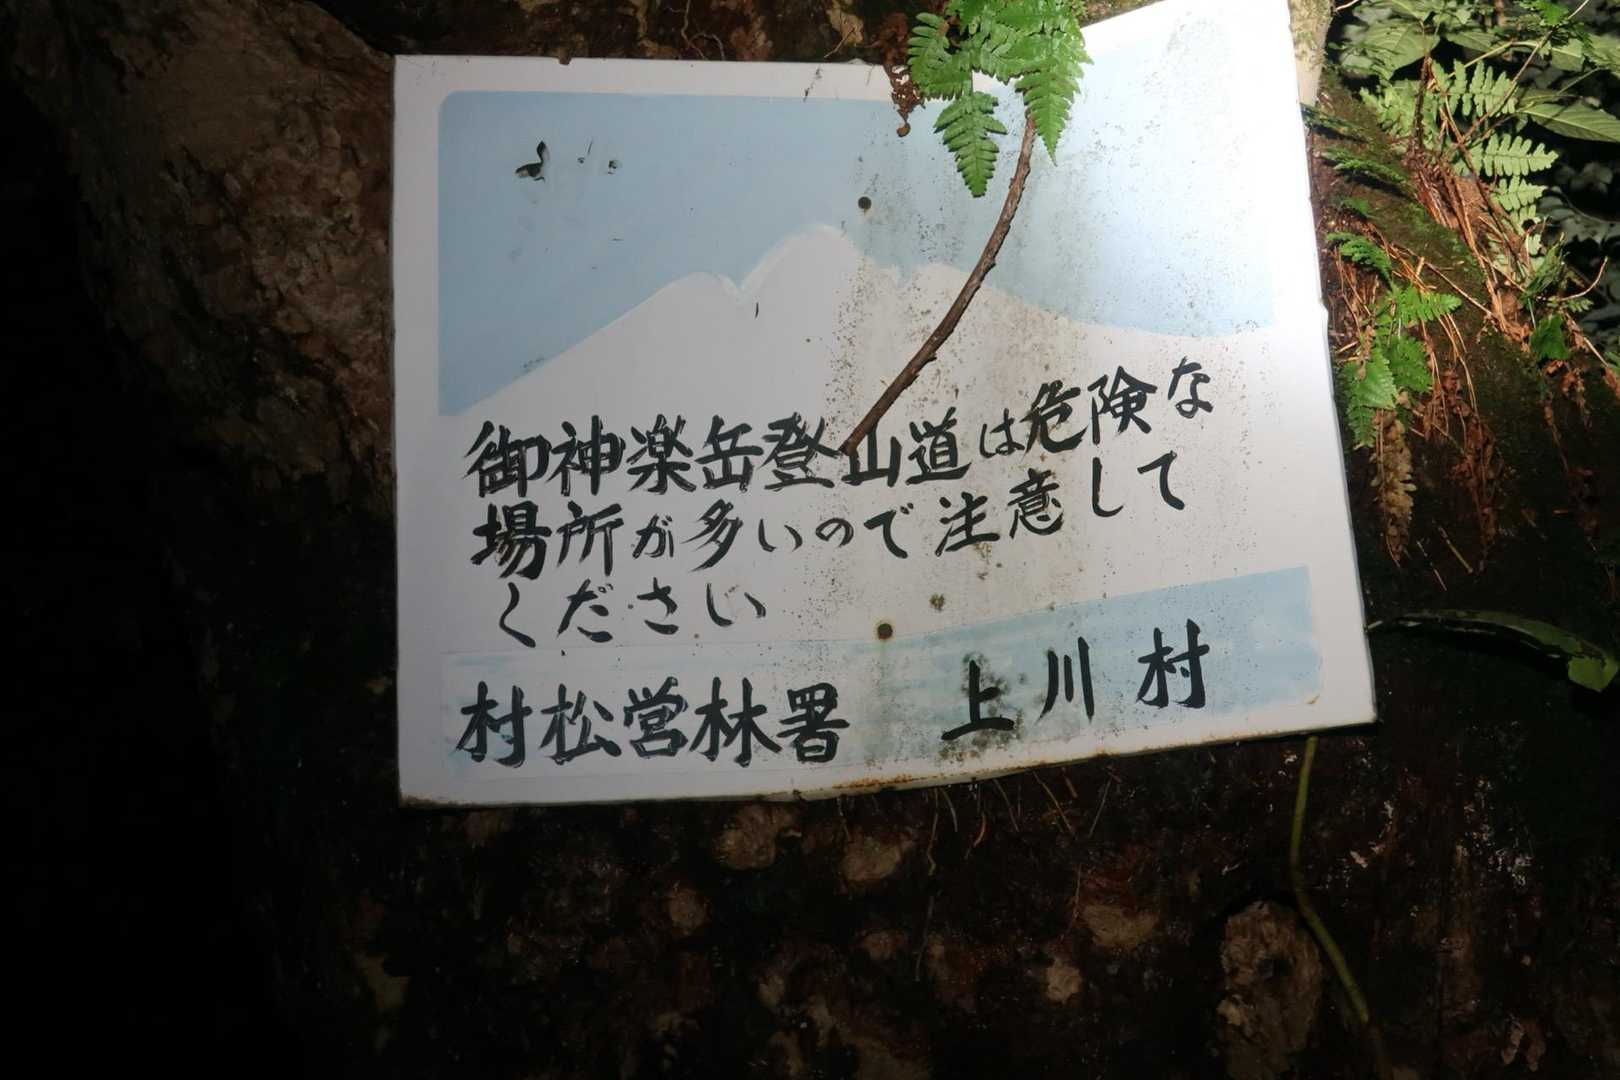 御神楽岳登山道は危険な
場所が多いので注意して
ください
村松営林署 上川村